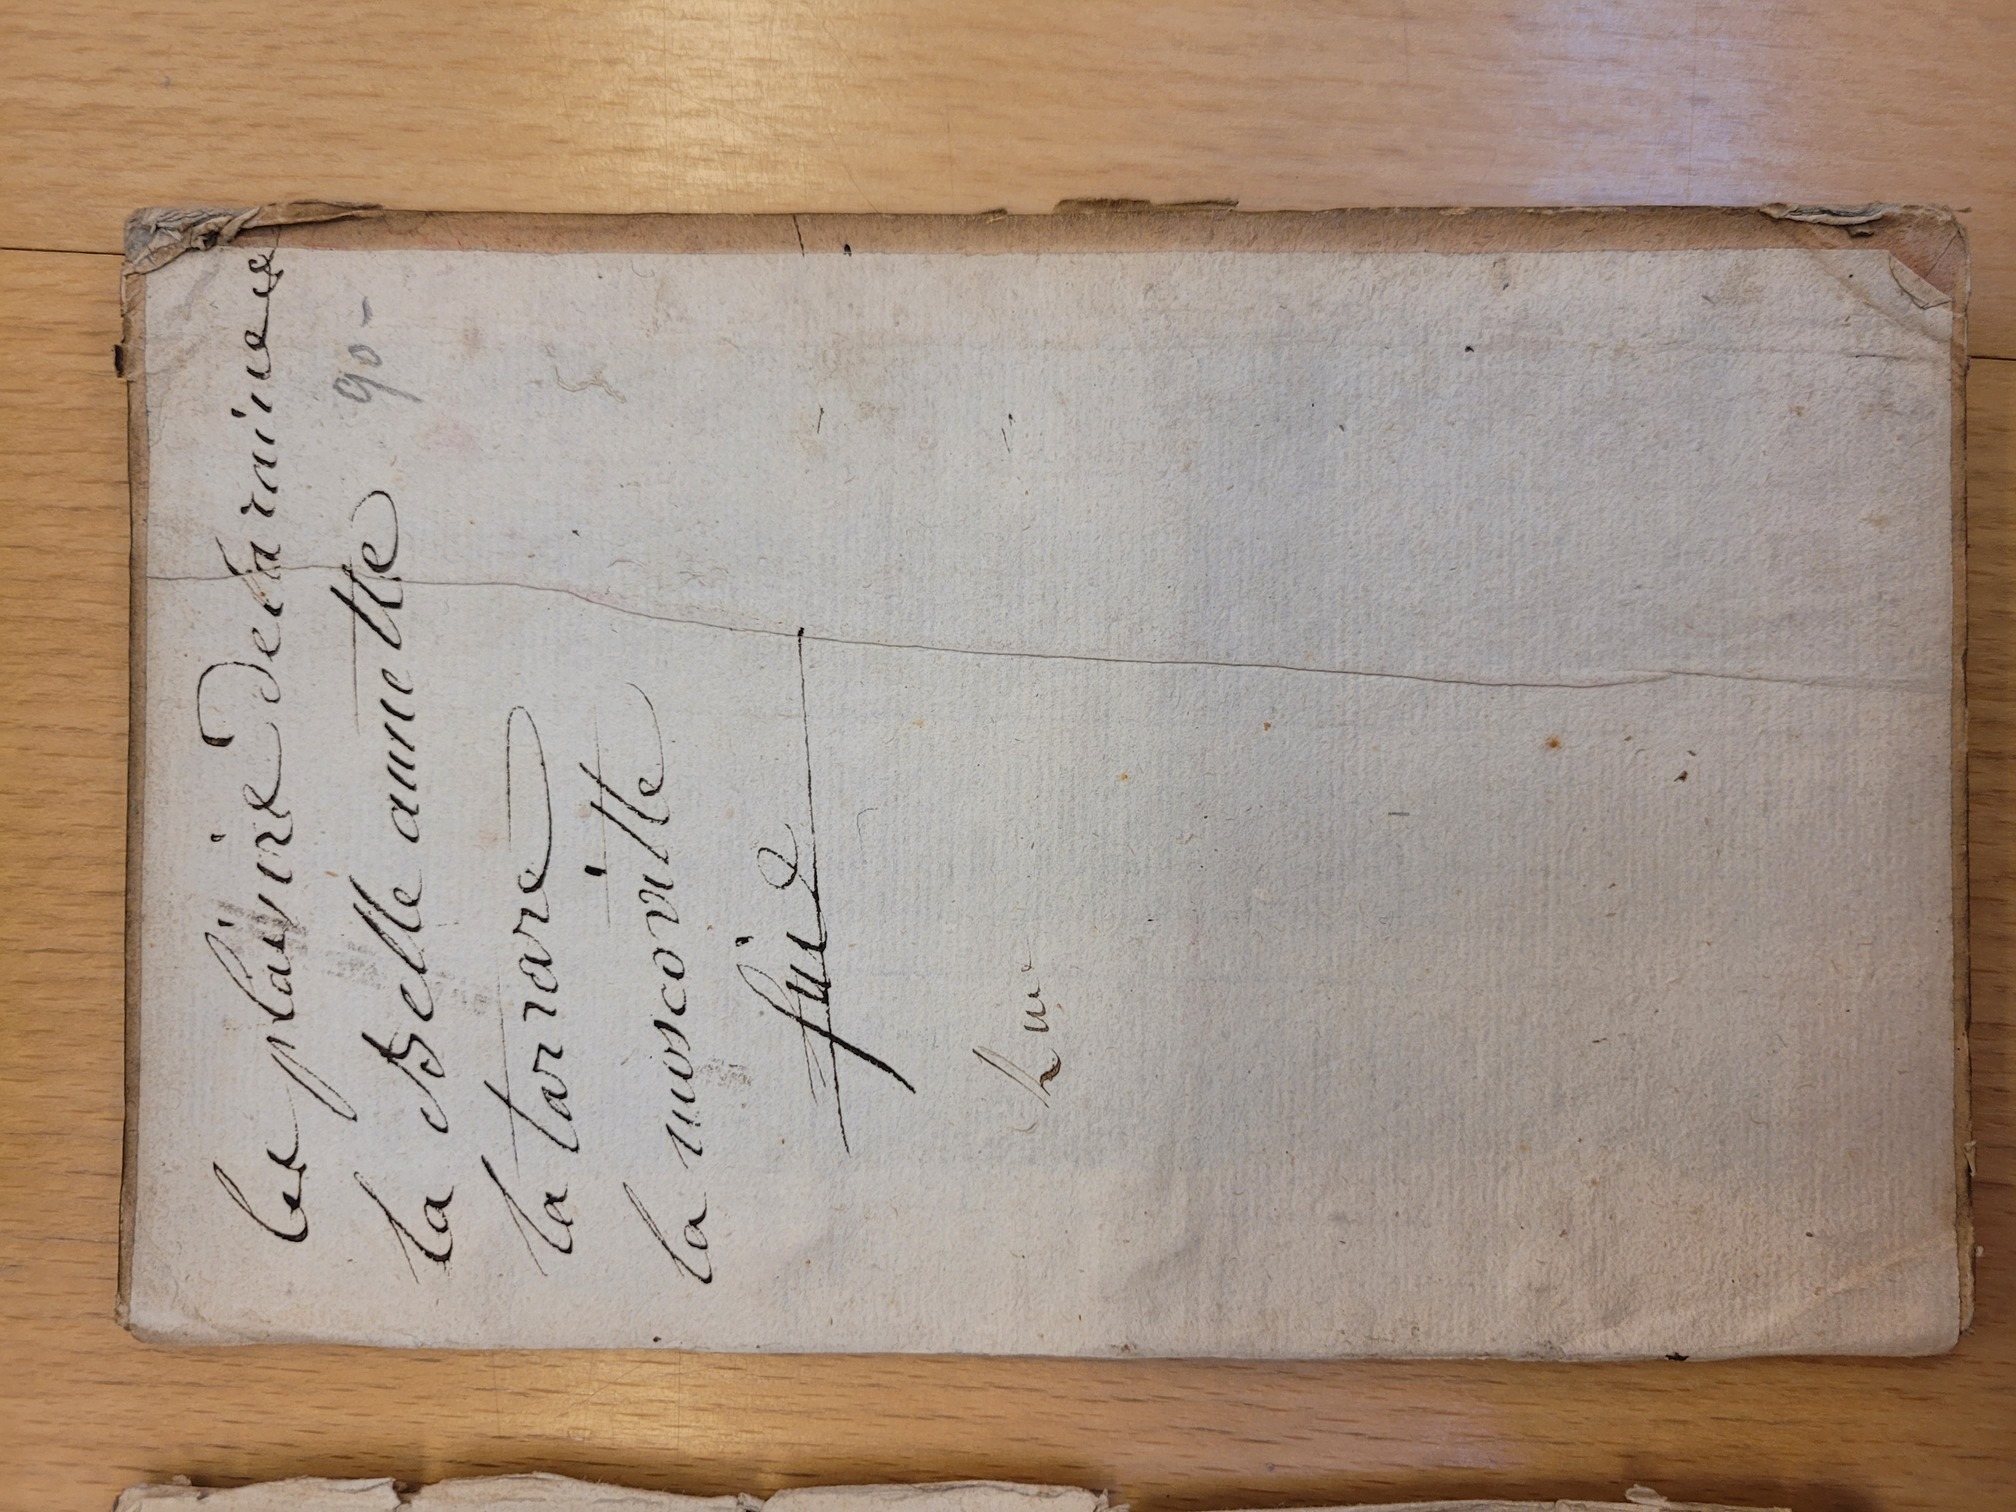 les plaisire de la raine
90-
la Belle annette
la tarrare
la moscovitte
fine